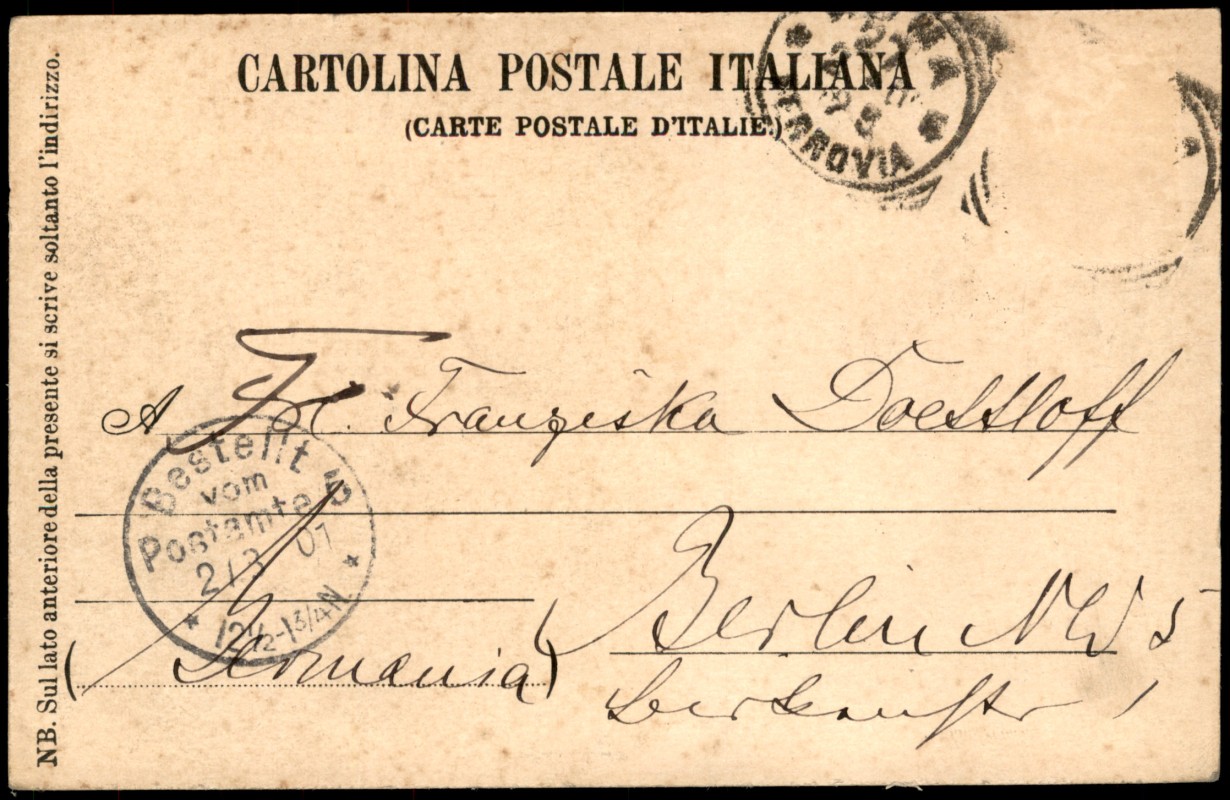 CARTOLINA POSTALE ITALIANA
(CARTE POSTALE D'ITALIE.)
FERROVIA
NB. Sul lato anteriore della presente si scrive soltanto l'indirizzo.
A Frl. Franziska Doesthoff
Bestellt
vom
Postamte 5
2/3 01
12½-1¾N
Berlin NW 5
(Germania)